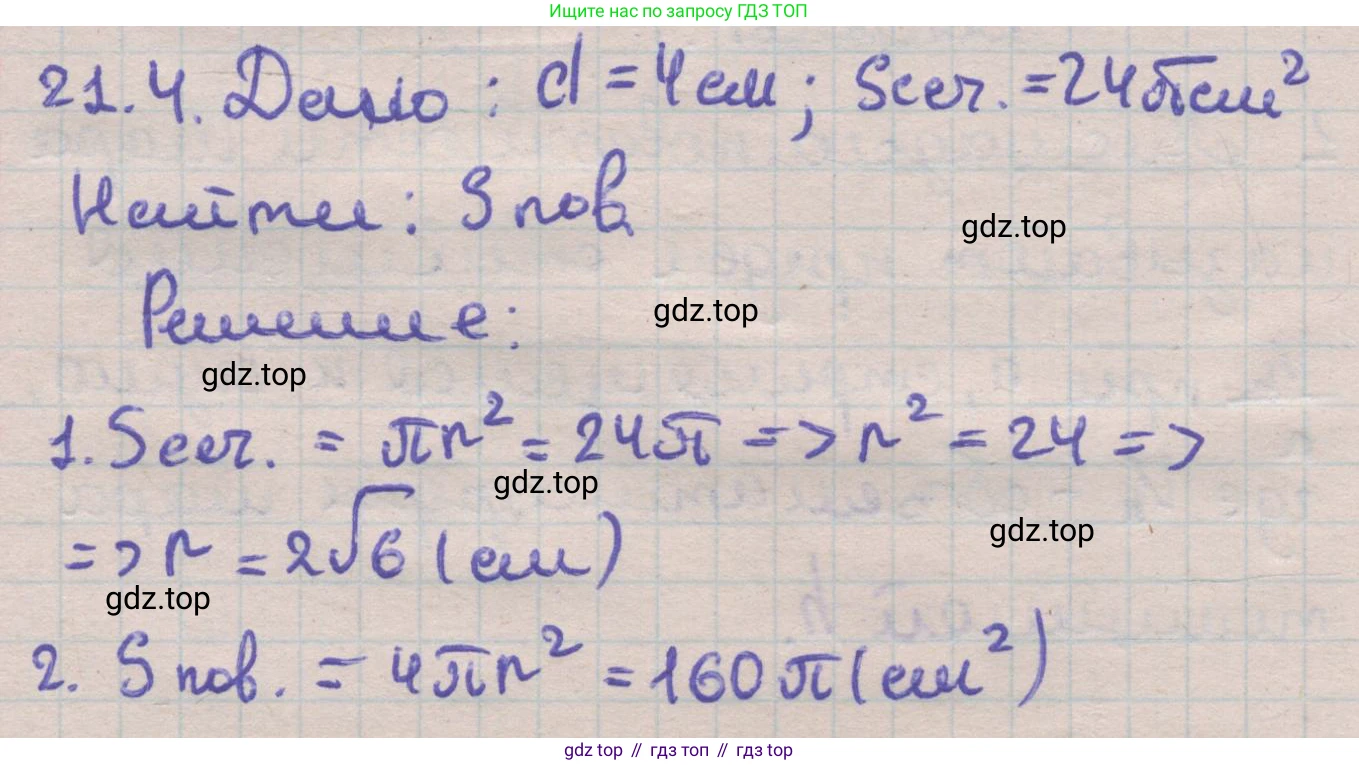 Ищите нас по запросу ГДЗ ТОП
21.4. Дано: d = 4 см; Sсеч. = 24π см²
Найти: Sпов.
gdz.top
Решение:
gdz.top
gdz.top
1. Sсеч. = πr² = 24π => r² = 24 =>
gdz.top
gdz.top
=> r = 2√6 (см)
gdz.top
2. Sпов. = 4πr² = 160π (см²)
gdz top // гдз топ // гдз top